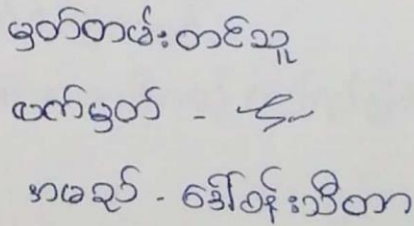 မှတ်တမ်းတင်သူ
လက်မှတ် -
အမည် - ဒေါ်ဝန်းသီတာ